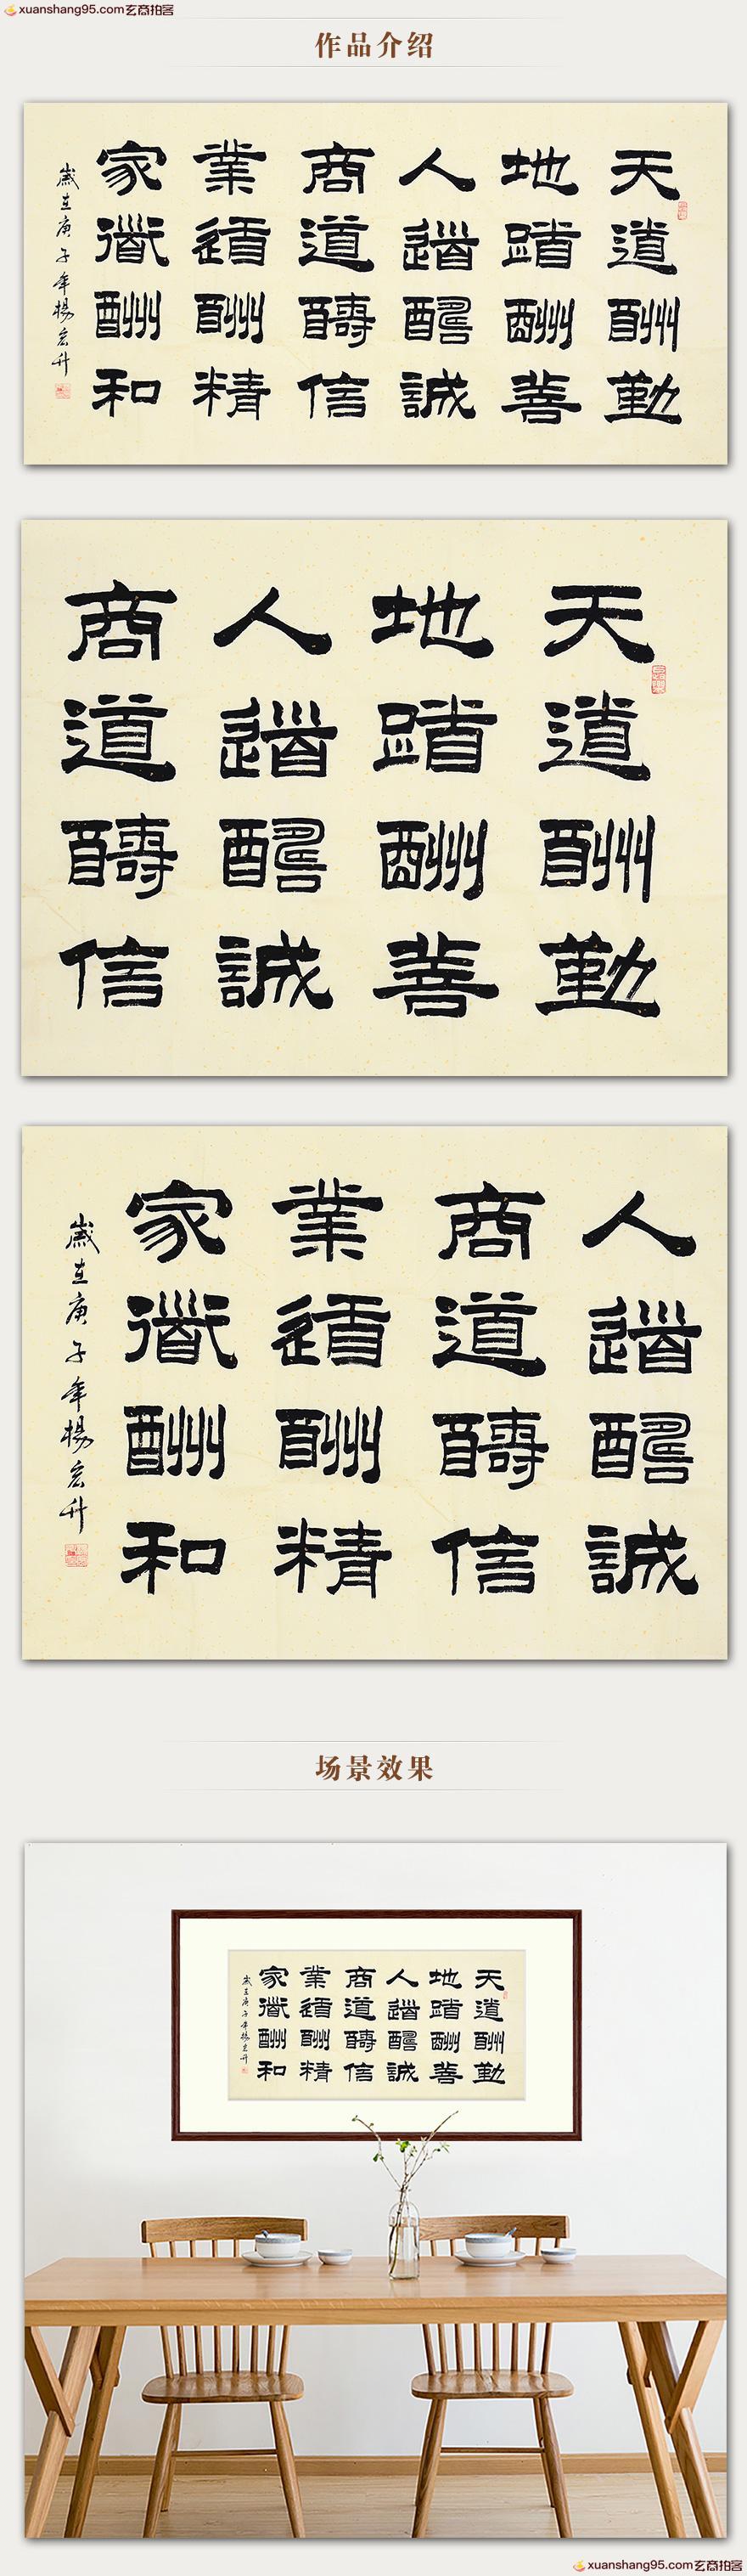 xuanshang95.com玄商拍客
作品介绍
天道酬勤
地道酬善
人道酬誠
商道酬信
業道酬精
家道酬和
歲在庚子年楊宏升
天道酬勤
地道酬善
人道酬誠
商道酬信
人道酬誠
商道酬信
業道酬精
家道酬和
歲在庚子年楊宏升
场景效果
天道酬勤
地道酬善
人道酬誠
商道酬信
業道酬精
家道酬和
歲在庚子年楊宏升
xuanshang95.com玄商拍客